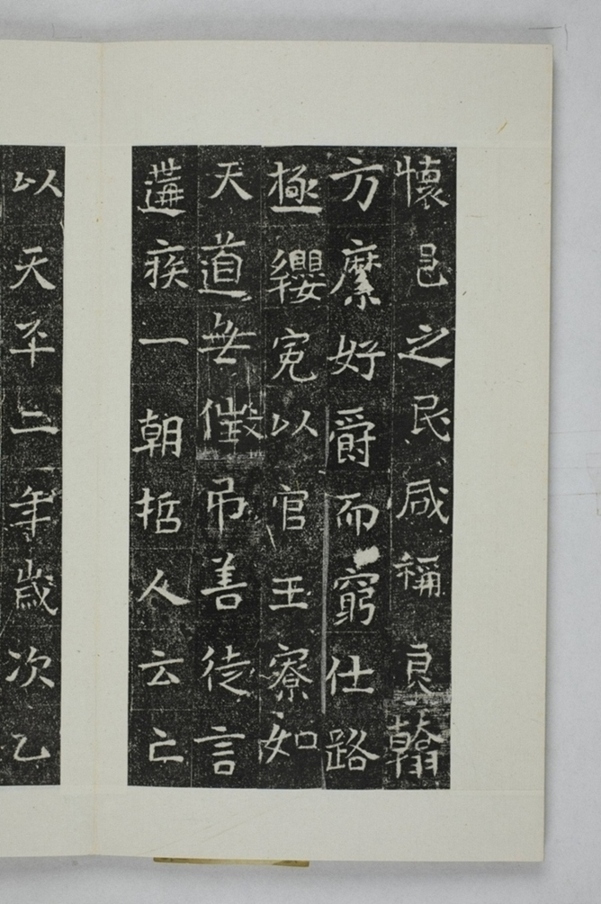 懷邑之民咸稱良翰
方縻好爵而窮仕路
極纓冕以官王寮如
天道無徵弔善徒言
遘疾一朝哲人云亡
以天平二年歲次乙